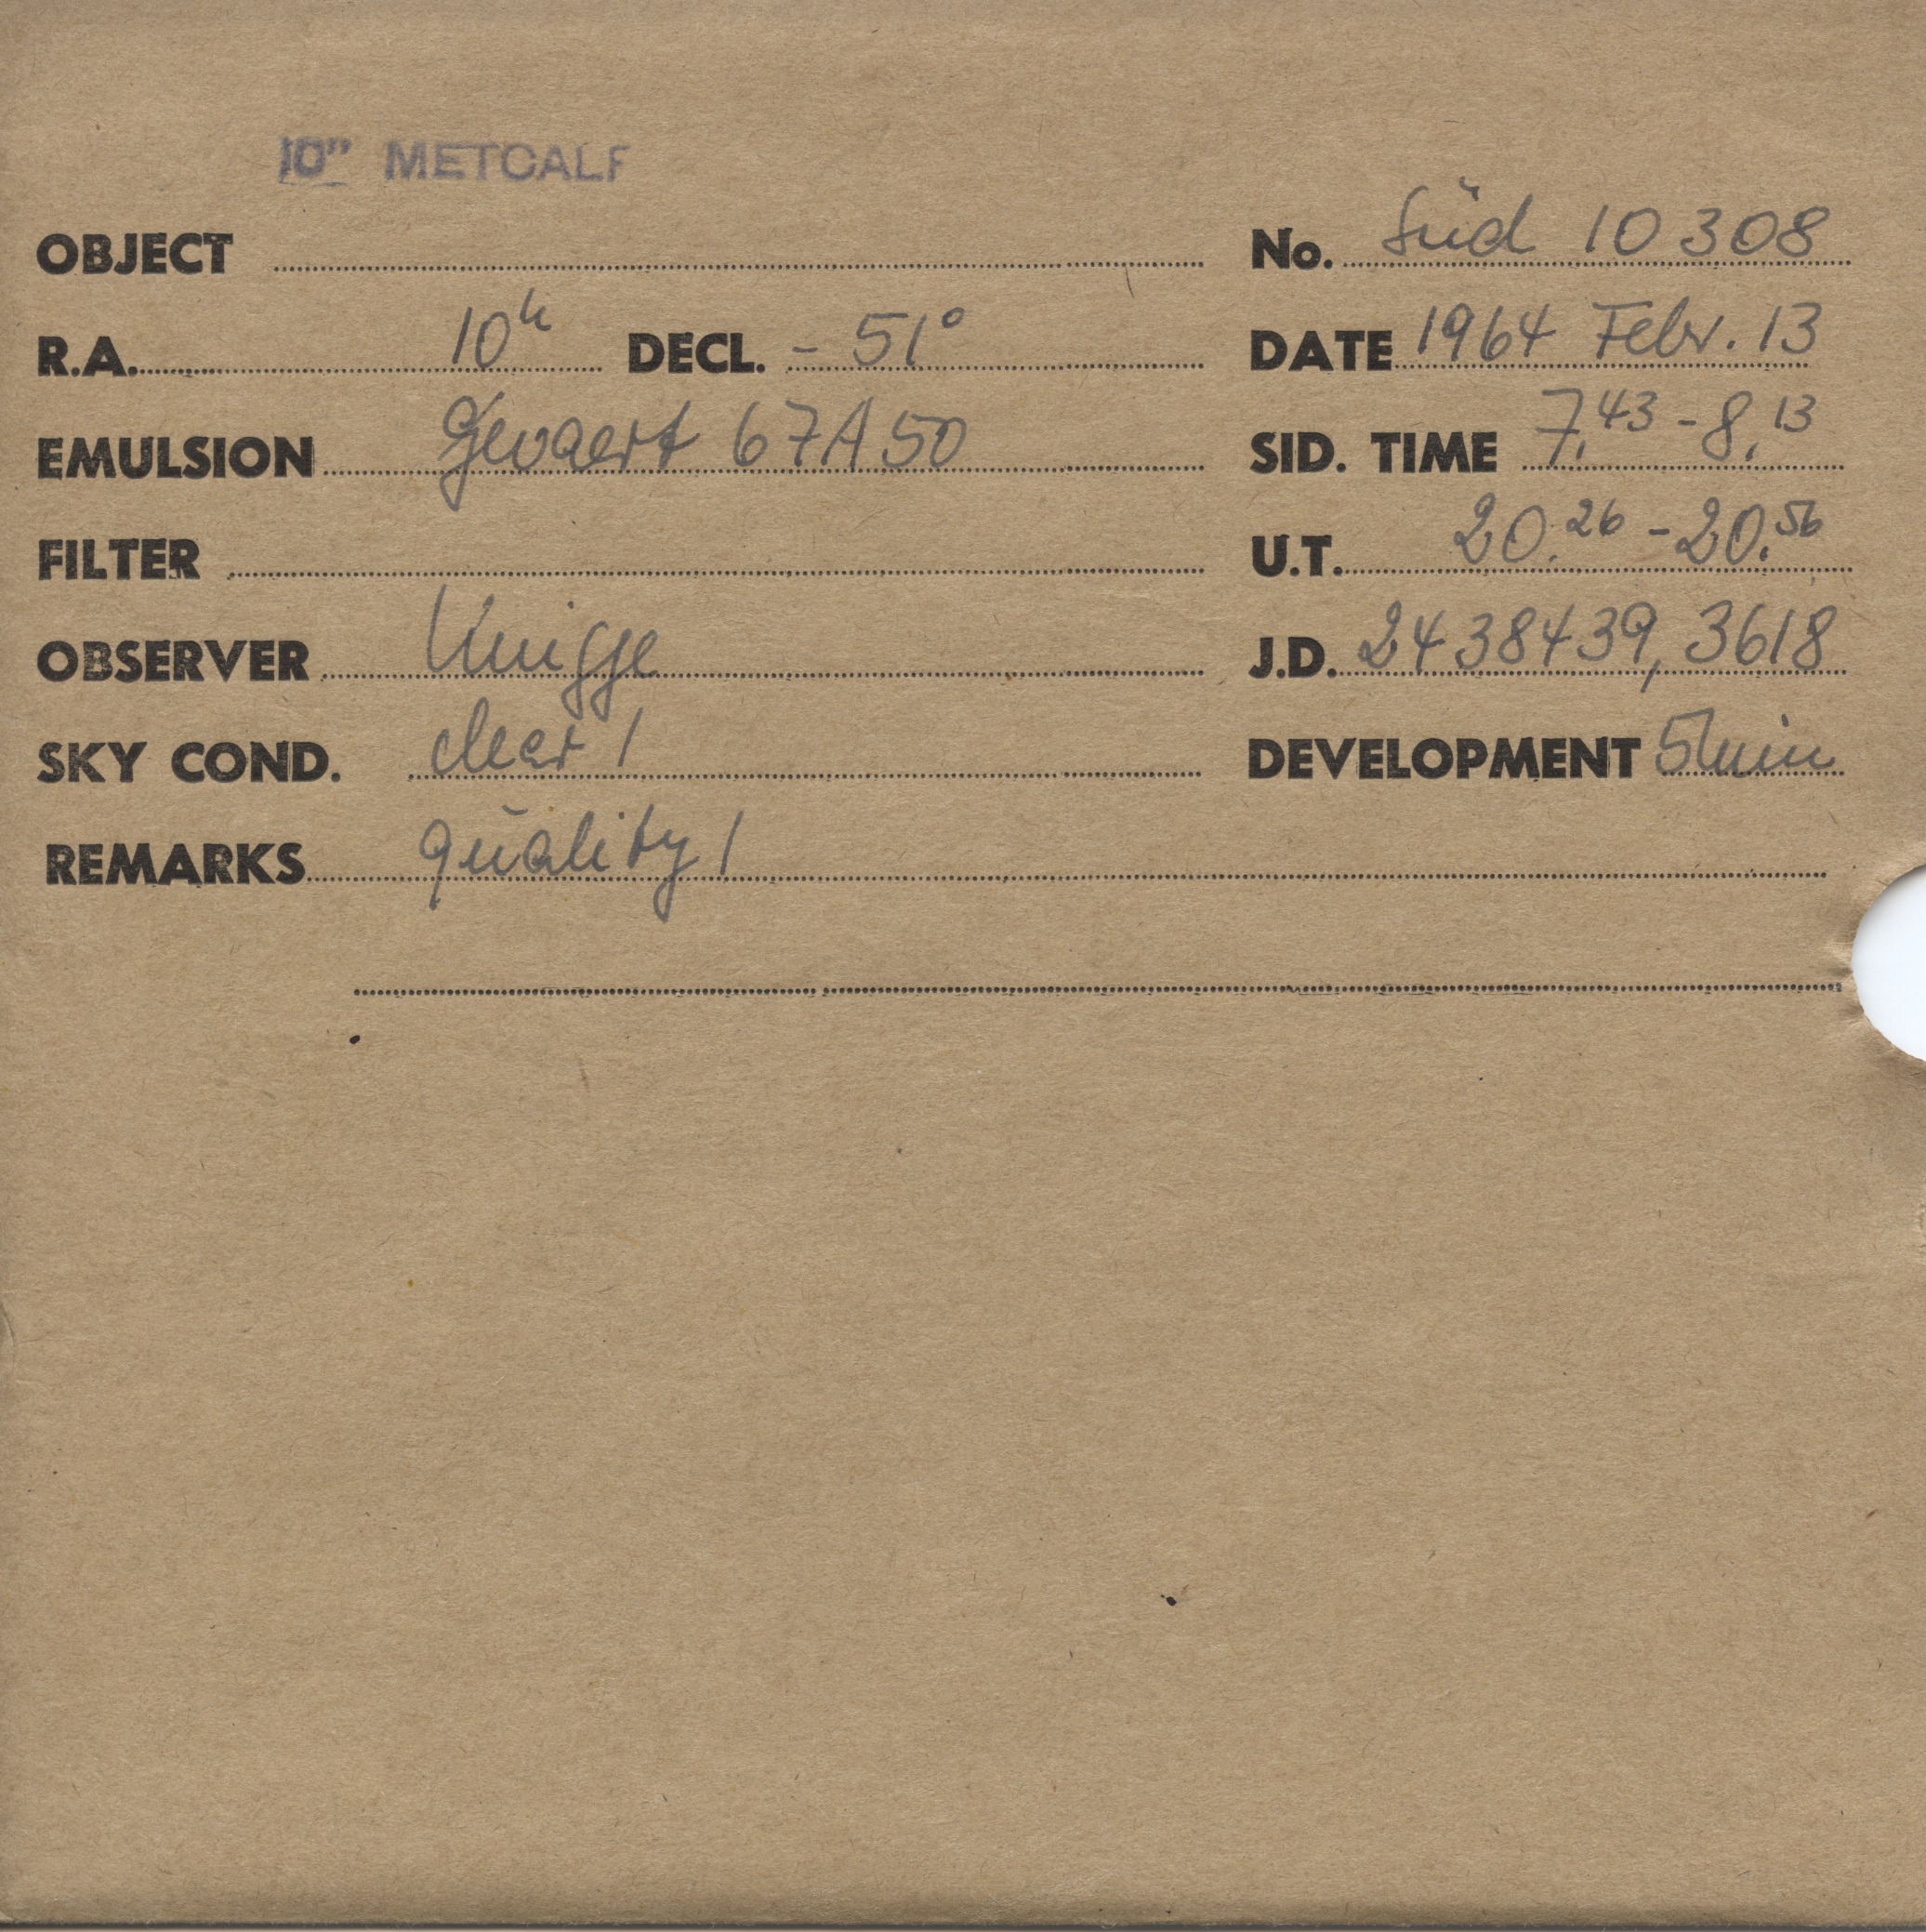 10" METCALF
OBJECT No. Süd 10308
R.A. 10h DECL. - 51° DATE 1964 Febr. 13
EMULSION Gevaert 67A50 SID. TIME 7.43 - 8.13
FILTER U.T. 20.26 - 20.56
OBSERVER Knigge J.D. 2438439,3618
SKY COND. clear 1 DEVELOPMENT 5min
REMARKS quality 1